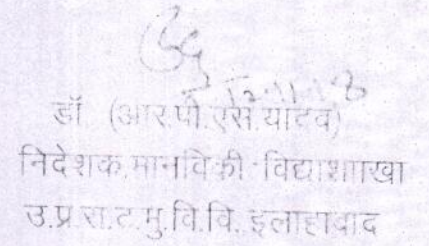 डॉ. (आर.पी.एस.यादव)
निदेशक,मानविकी विद्याशाखा
उ.प्र.रा.ट.मु.वि.वि. इलाहाबाद